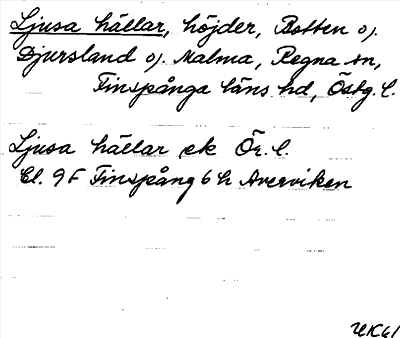 Ljusa hällar, höjder, Botten o).
Djursland o). Malma, Regna sn,
Finspånga läns hd, Östg. l.
Ljusa hällar ek Ör. l.
Bl. 9F Finspång 6 h Averviken